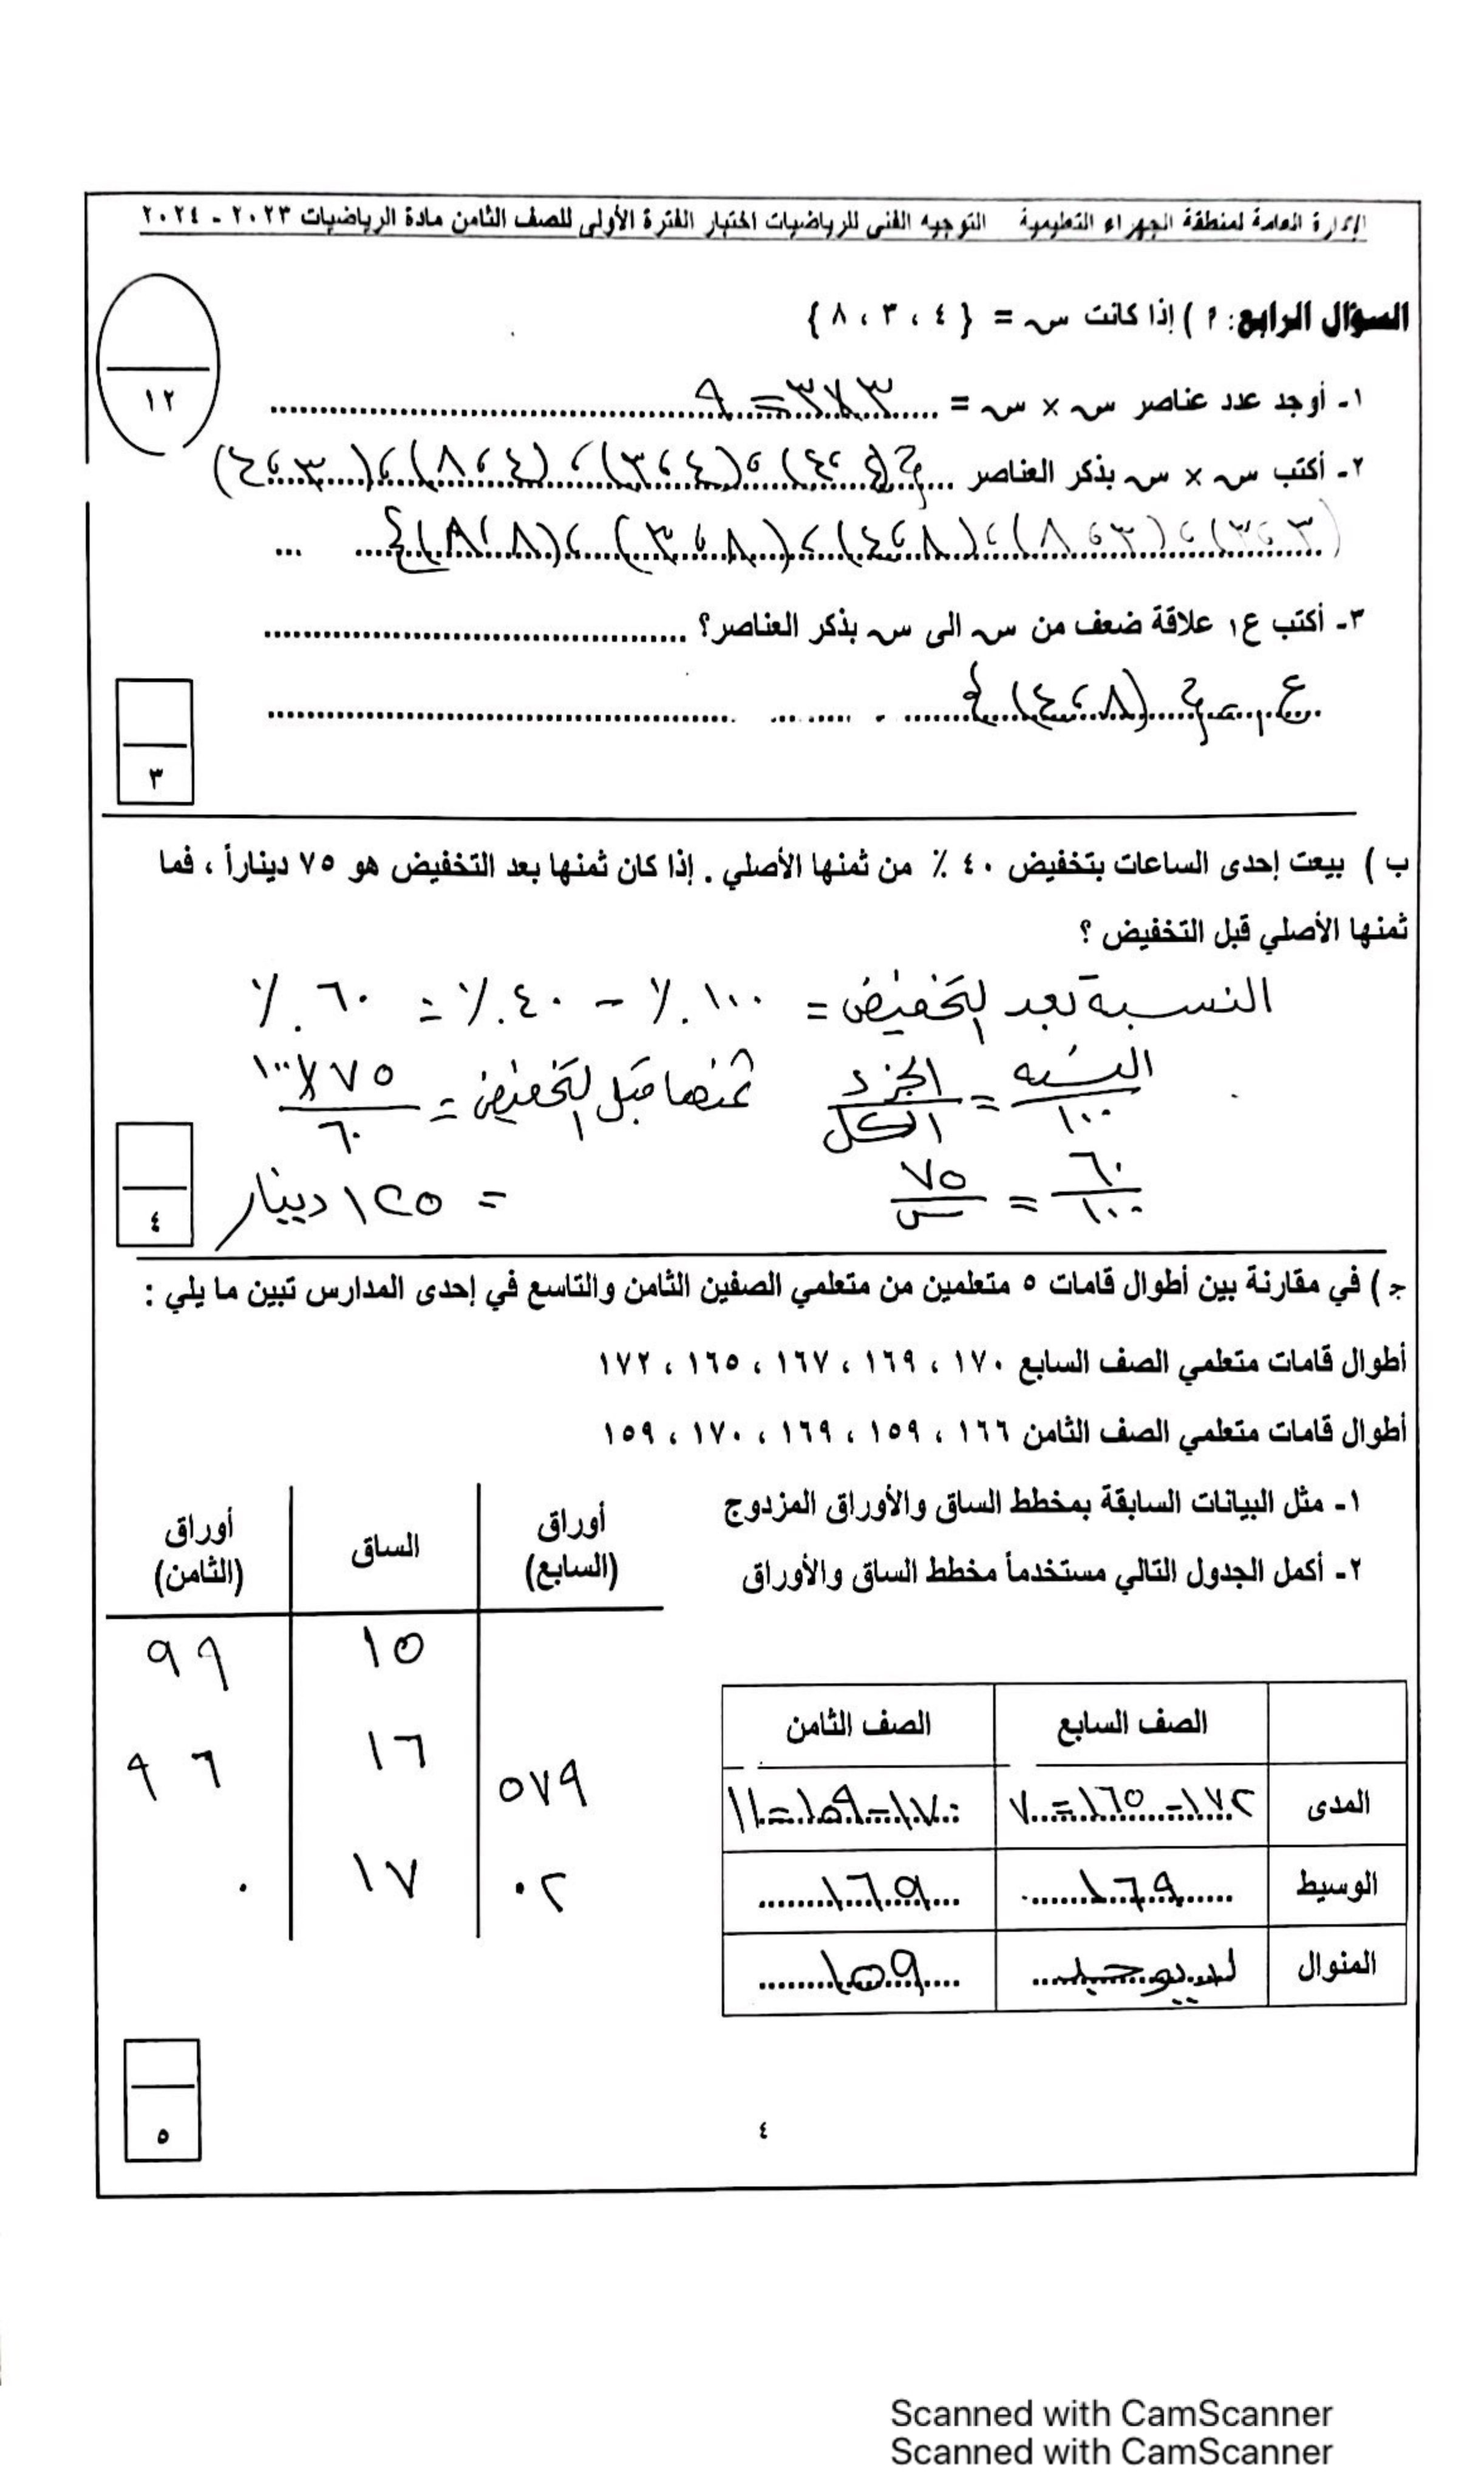 الإدارة العامة لمنطقة الجهراء التعليمية التوجيه الفني للرياضيات اختبار الفترة الأولى للصف الثامن مادة الرياضيات ٢٠٢٣ - ٢٠٢٤
السؤال الرابع: ٢ ) إذا كانت س = { ٤ ، ٣ ، ٨ }
١٢
١- أوجد عدد عناصر س × س = ٣×٣=٩
٢- أكتب س × س بذكر العناصر {(٤،٤)،(٤،٣)،(٤،٨)،(٣،٤)
(٣،٣)،(٣،٨)،(٨،٤)،(٨،٣)،(٨،٨)}
٣- أكتب ع١ علاقة ضعف من س الى س بذكر العناصر؟
ع١ = {(٨،٤)}
٣
ب ) بيعت إحدى الساعات بتخفيض ٤٠ ٪ من ثمنها الأصلي . إذا كان ثمنها بعد التخفيض هو ٧٥ ديناراً ، فما
ثمنها الأصلي قبل التخفيض ؟
النسبة بعد التخفيض = ١٠٠٪ - ٤٠٪ = ٦٠٪
النسبة/١٠٠ = الجزء/الكل ثمنها قبل التخفيض = ٧٥×١٠٠/٦٠
٦٠/١٠٠ = ٧٥/س = ١٢٥ دينار
٤
ج ) في مقارنة بين أطوال قامات ٥ متعلمين من متعلمي الصفين الثامن والتاسع في إحدى المدارس تبين ما يلي :
أطوال قامات متعلمي الصف السابع ١٧٠ ، ١٦٩ ، ١٦٧ ، ١٦٥ ، ١٧٢
أطوال قامات متعلمي الصف الثامن ١٦٦ ، ١٥٩ ، ١٦٩ ، ١٧٠ ، ١٥٩
١- مثل البيانات السابقة بمخطط الساق والأوراق المزدوج
٢- أكمل الجدول التالي مستخدماً مخطط الساق والأوراق
أوراق (السابع) الساق أوراق (الثامن)
١٥ ٩ ٩
٥٧٩ ١٦ ٦ ٩
٠٢ ١٧ ٠
الصف السابع الصف الثامن
المدى ١٧٢-١٦٥=٧ ١٧٠-١٥٩=١١
الوسيط ١٦٩ ١٦٩
المنوال لا يوجد ١٥٩
٥
٤
Scanned with CamScanner
Scanned with CamScanner